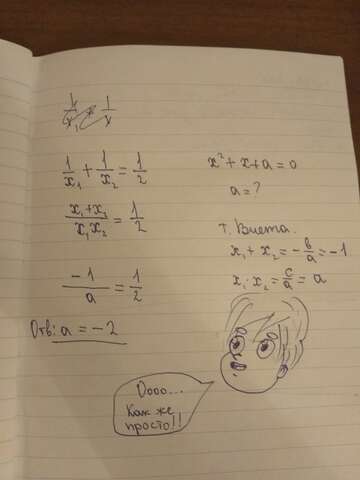 1/x₁ + 1/x₂ = 1/2
(x₁+x₂)/(x₁x₂) = 1/2
-1/a = 1/2
Отв: a = -2
x² + x + a = 0
a = ?
т. Виета.
x₁ + x₂ = -b/a = -1
x₁ · x₂ = c/a = a
Оооо...
Как же
просто!!